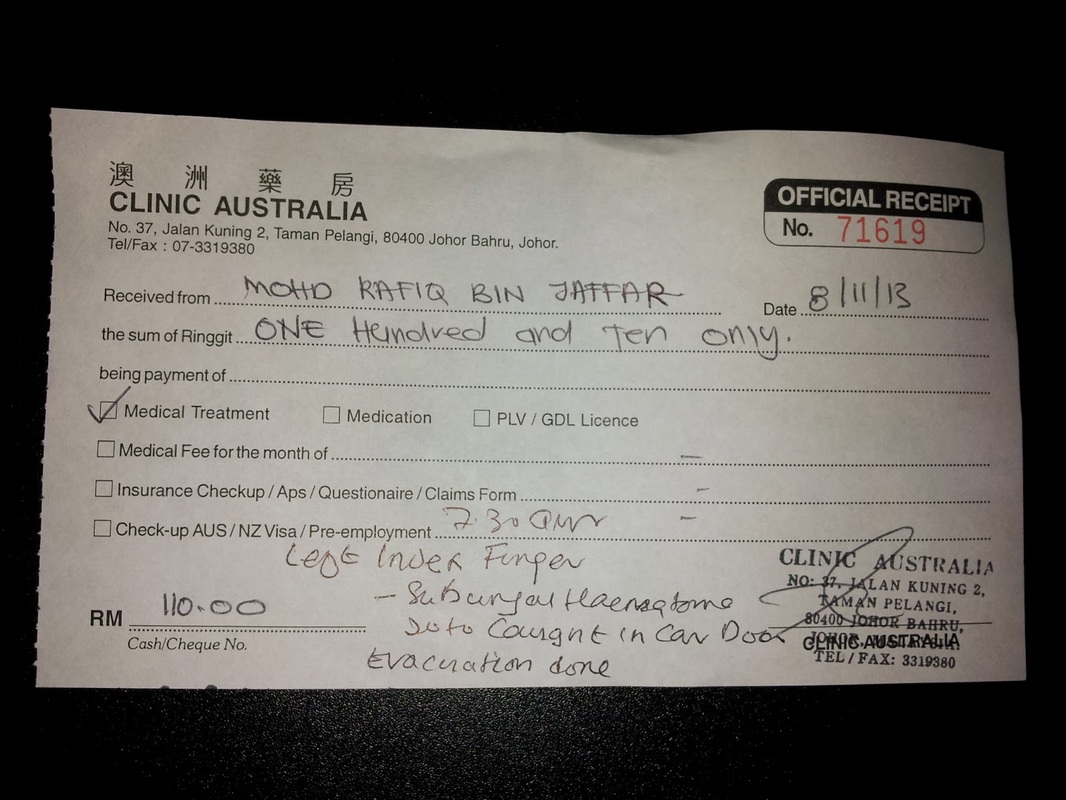 澳洲藥房
CLINIC AUSTRALIA
No. 37, Jalan Kuning 2, Taman Pelangi, 80400 Johor Bahru, Johor.
Tel/Fax : 07-3319380
OFFICIAL RECEIPT
No. 71619
Received from MOHD RAFIQ BIN JAFFAR
Date 8/11/13
the sum of Ringgit ONE Hundred and Ten only.
being payment of
Medical Treatment
Medication
PLV / GDL Licence
Medical Fee for the month of –
Insurance Checkup / Aps / Questionaire / Claims Form –
Check-up AUS / NZ Visa / Pre-employment 7.30 –
Left Index Finger
- Subungal Haematoma
to Caught in Car Door
Evacuation done
RM 110.00
Cash/Cheque No.
CLINIC AUSTRALIA
NO: 37, JALAN KUNING 2,
TAMAN PELANGI,
80400 JOHOR BAHRU,
JOHOR,
CLINIC AUSTRALIA
TEL / FAX: 3319380